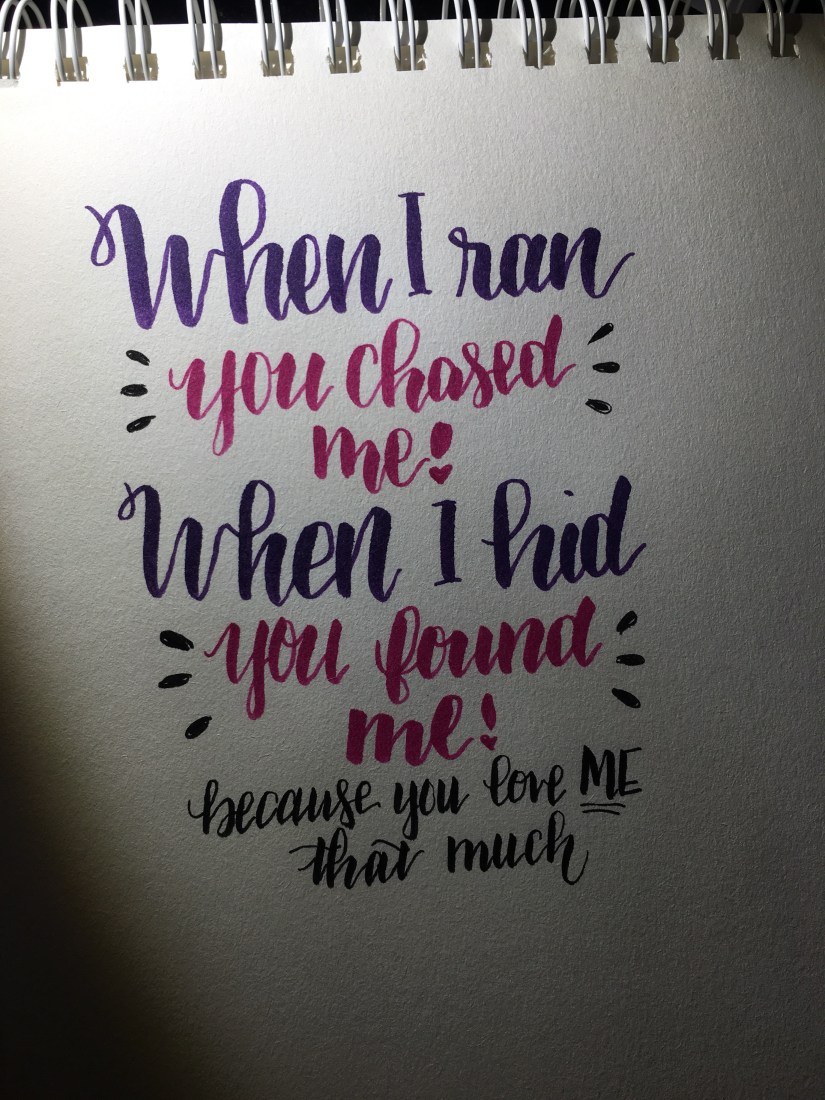 When I ran
you chased
me!
When I hid
you found
me!
because you love ME
that much